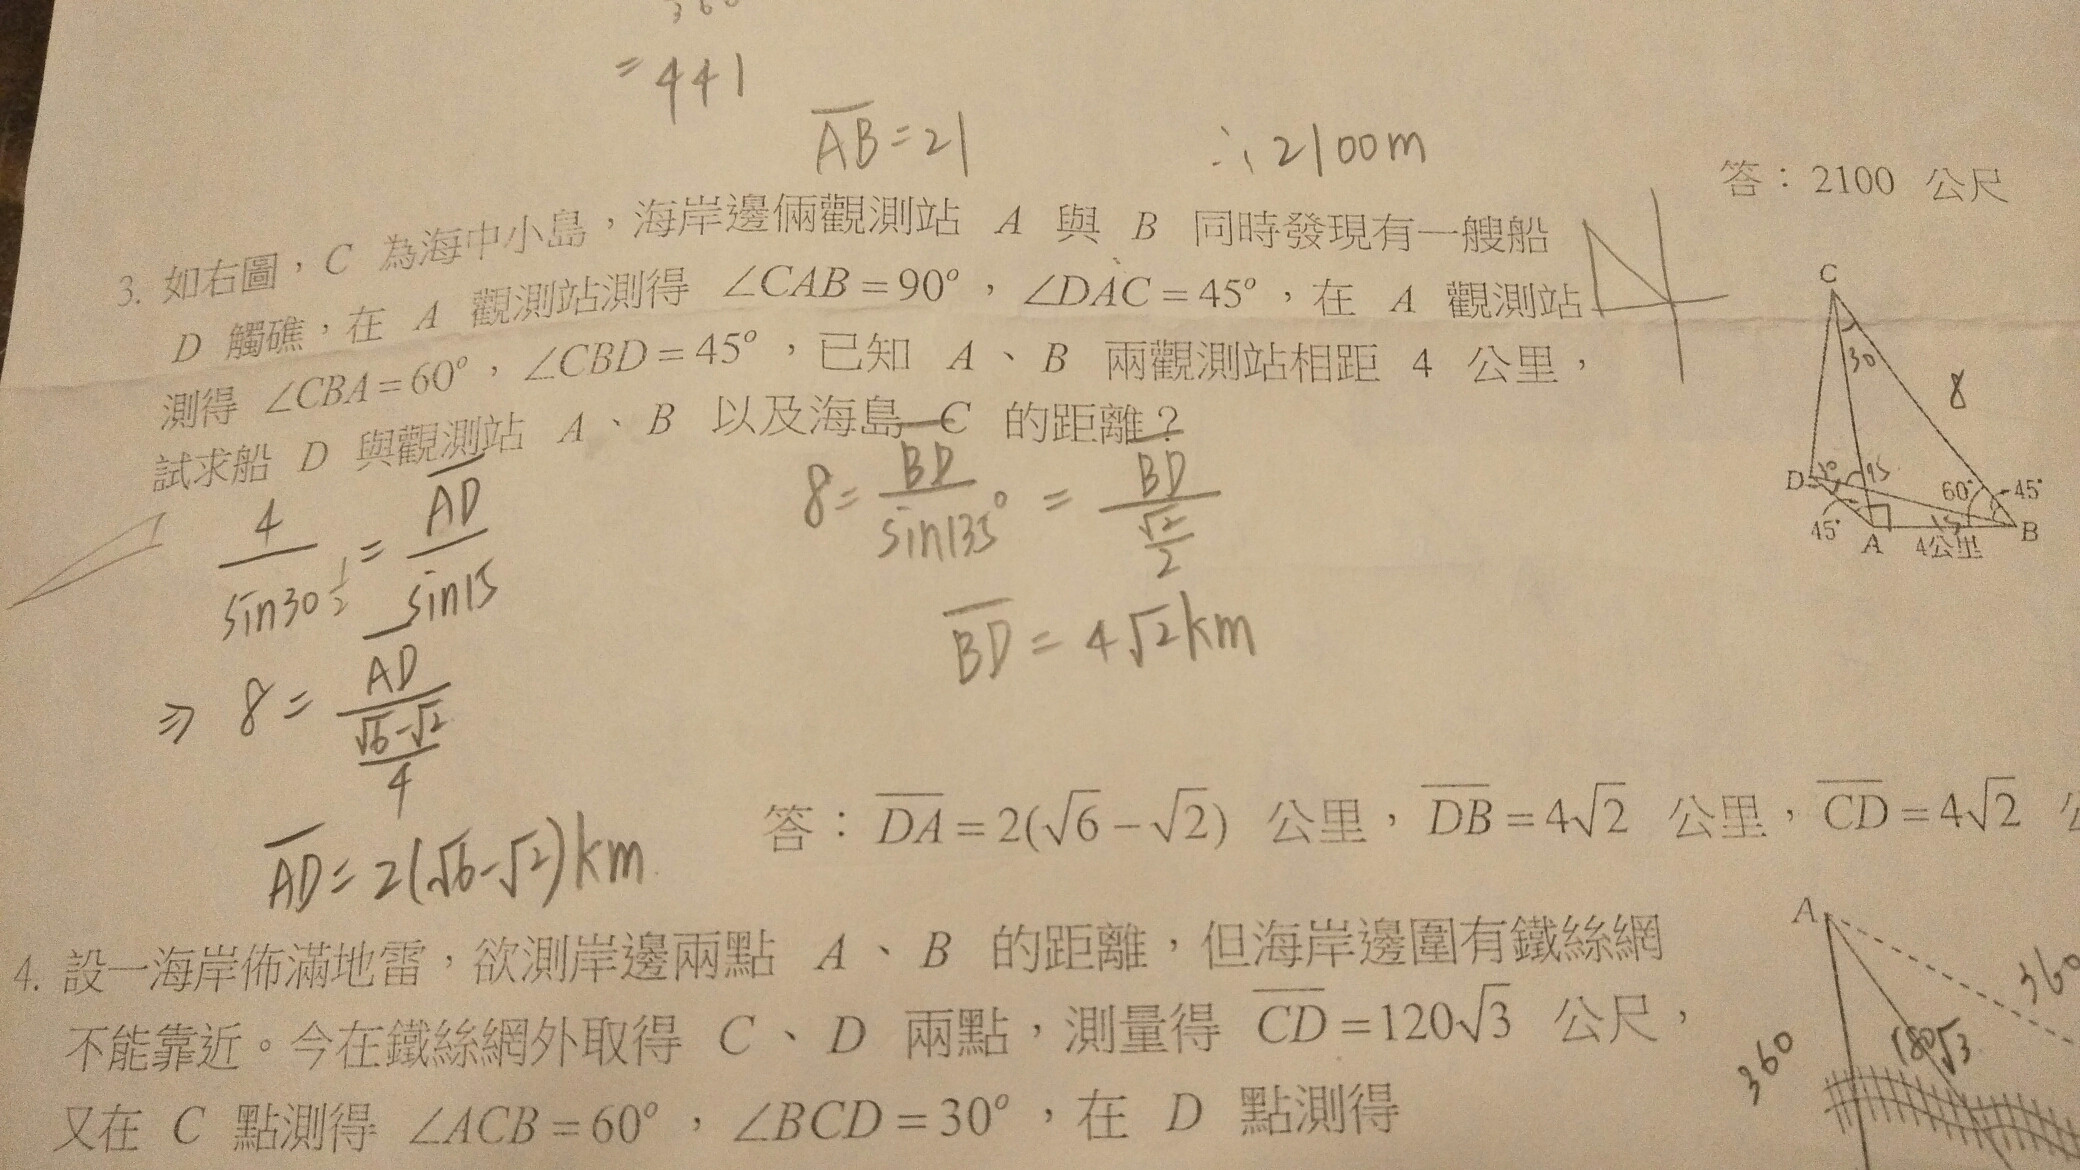 = 441
AB = 21
∴ 2100m
答：2100 公尺
3. 如右圖，C 為海中小島，海岸邊倆觀測站 A 與 B 同時發現有一艘船
D 觸礁，在 A 觀測站測得 ∠CAB = 90°，∠DAC = 45°，在 A 觀測站
測得 ∠CBA = 60°，∠CBD = 45°，已知 A、B 兩觀測站相距 4 公里，
試求船 D 與觀測站 A、B 以及海島 C 的距離？
C
30
8
D
45°
A
4公里
15
60°
45°
B
4/sin30 1/2 = AD/sin15
8 = BD/sin135° = BD/(√2/2)
BD = 4√2 km
⇒ 8 = AD/((√6-√2)/4)
AD = 2(√6-√2) km
答：DA = 2(√6 − √2) 公里，DB = 4√2 公里，CD = 4√2
4. 設一海岸佈滿地雷，欲測岸邊兩點 A、B 的距離，但海岸邊圍有鐵絲網
不能靠近。今在鐵絲網外取得 C、D 兩點，測量得 CD = 120√3 公尺，
又在 C 點測得 ∠ACB = 60°，∠BCD = 30°，在 D 點測得
A
360
360
180√3